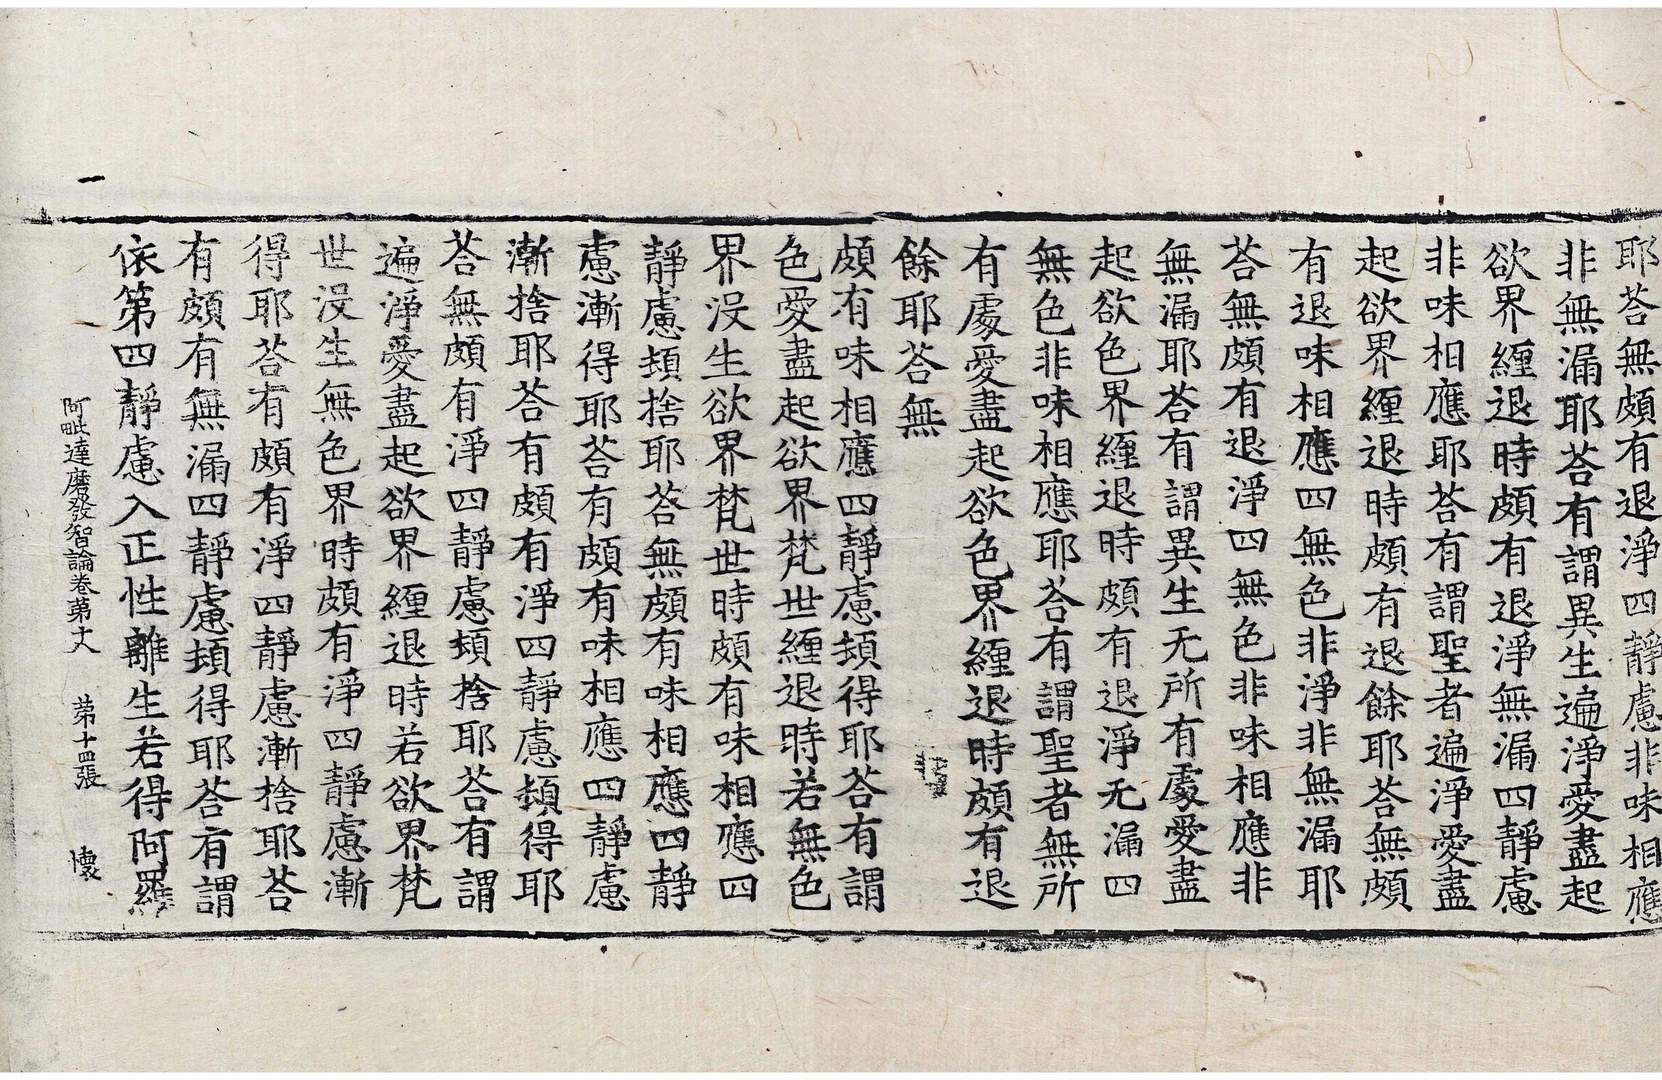 耶荅無頗有退淨四靜慮非味相應
非無漏耶荅有謂異生遍淨愛盡起
欲界纏退時頗有退淨無漏四靜慮
非味相應耶荅有謂聖者遍淨愛盡
起欲界纏退時頗有退餘耶荅無頗
有退味相應四無色非淨非無漏耶
荅無頗有退淨四無色非味相應非
無漏耶荅有謂異生无所有處愛盡
起欲色界纏退時頗有退淨无漏四
無色非味相應耶荅有謂聖者無所
有處愛盡起欲色界纏退時頗有退
餘耶荅無
頗有味相應四靜慮頓得耶荅有謂
色愛盡起欲界梵世纏退時若無色
界没生欲界梵世時頗有味相應四
靜慮頓捨耶荅無頗有味相應四靜
慮漸得耶荅有頗有味相應四靜慮
漸捨耶荅有頗有淨四靜慮頓得耶
荅無頗有淨四靜慮頓捨耶荅有謂
遍淨愛盡起欲界纏退時若欲界梵
世没生無色界時頗有淨四靜慮漸
得耶荅有頗有淨四靜慮漸捨耶荅
有頗有無漏四靜慮頓得耶荅有謂
依第四靜慮入正性離生若得阿羅
阿毗達磨發智論卷苐十八 苐十四張 懷